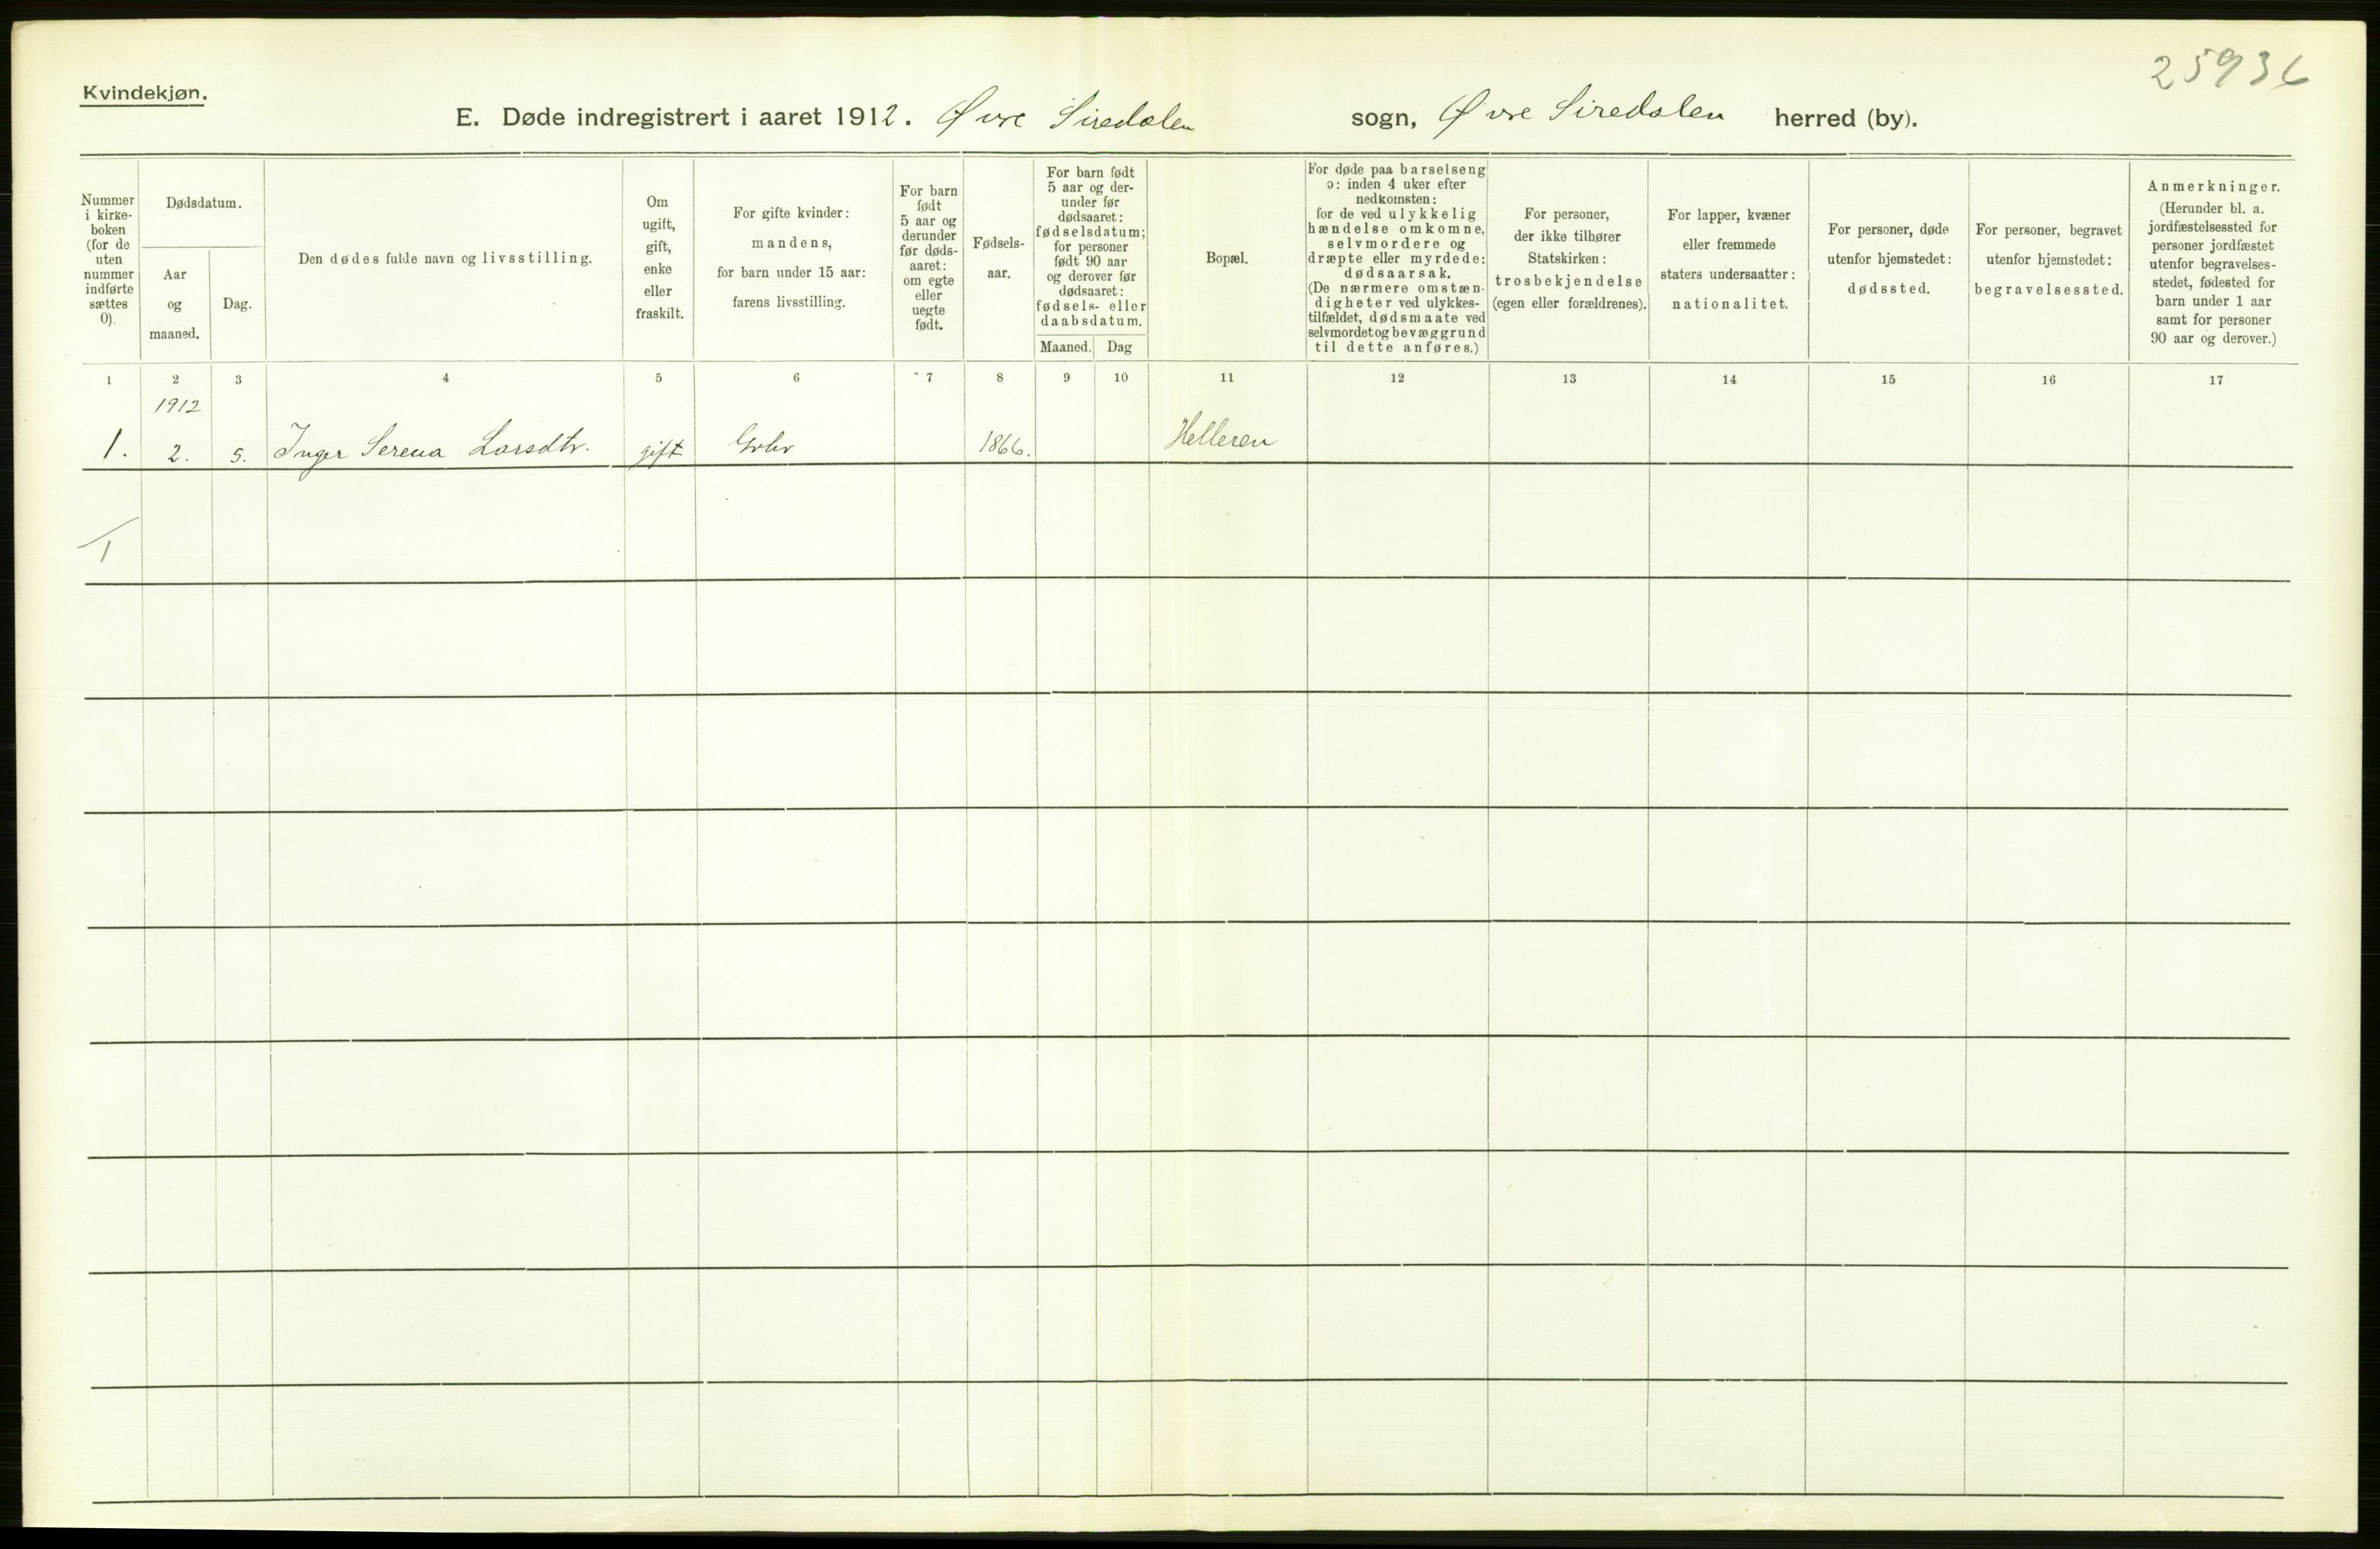 25936
Kvindekjøn.
E. Døde indregistrert i aaret 1912. Øvre Siredalen sogn, Øvre Siredalen herred (by).
Nummer
i kirke-
boken
(for de
uten
nummer
indførte
sættes
0).
Dødsdatum.
Aar
og
maaned.
Dag.
Den dødes fulde navn og livsstilling.
Om
ugift,
gift,
enke
eller
fraskilt.
For gifte kvinder:
mandens,
for barn under 15 aar:
farens livsstilling.
For barn
født
5 aar og
derunder
før døds-
aaret:
om egte
eller
uegte
født.
Fødsels-
aar.
For barn født
5 aar og der-
under før
dødsaaret:
fødselsdatum;
for personer
født 90 aar
og derover før
dødsaaret:
fødsels- eller
daabsdatum.
Maaned. Dag
Bopæl.
For døde paa barselseng
ɔ: inden 4 uker efter
nedkomsten:
for de ved ulykkelig
hændelse omkomne,
selvmordere og
dræpte eller myrdede:
dødsaarsak.
(De nærmere omstæn-
digheter ved ulykkes-
tilfældet, dødsmaate ved
selvmordet og bevæggrund
til dette anføres.)
For personer,
der ikke tilhører
Statskirken:
trosbekjendelse
(egen eller forældrenes).
For lapper, kvæner
eller fremmede
staters undersaatter:
nationalitet.
For personer, døde
utenfor hjemstedet:
dødssted.
For personer, begravet
utenfor hjemstedet:
begravelsessted.
Anmerkninger.
(Herunder bl. a.
jordfæstelsessted for
personer jordfæstet
utenfor begravelses-
stedet, fødested for
barn under 1 aar
samt for personer
90 aar og derover.)
1 2 3 4 5 6 7 8 9 10 11 12 13 14 15 16 17
1912
1. 2. 5. Inger Serena Larsdtr. gift Gbr 1866. Helleren
1